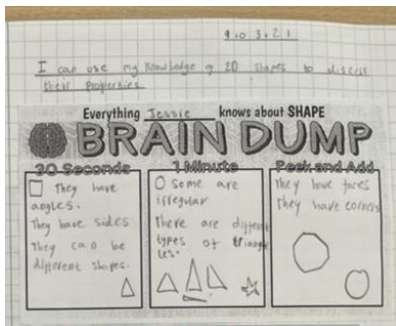 9.03.21
I can use my knowledge of 2D shapes to discuss
their properties
Everything Jessie knows about SHAPE
BRAIN DUMP
30 Seconds
They have
angles.
They have sides
They can be
different shapes.
1 Minute
Some are
irregular
There are different
types of triang
les.
Peek and Add
They have faces
They have corners